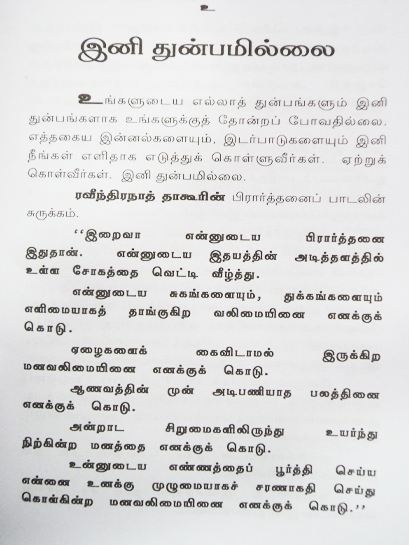 உ
இனி துன்பமில்லை
உங்களுடைய எல்லாத் துன்பங்களும் இனி
துன்பங்களாக உங்களுக்குத் தோன்றப் போவதில்லை.
எத்தகைய இன்னல்களையும், இடர்பாடுகளையும் இனி
நீங்கள் எளிதாக எடுத்துக் கொள்ளுவீர்கள். ஏற்றுக்
கொள்வீர்கள். இனி துன்பமில்லை.
ரவீந்திரநாத் தாகூரின் பிரார்த்தனைப் பாடலின்
சுருக்கம்.
‘‘இறைவா என்னுடைய பிரார்த்தனை
இதுதான். என்னுடைய இதயத்தின் அடித்தளத்தில்
உள்ள சோகத்தை வெட்டி வீழ்த்து.
என்னுடைய சுகங்களையும், துக்கங்களையும்
எளிமையாகத் தாங்குகிற வலிமையினை எனக்குக்
கொடு.
ஏழைகளைக் கைவிடாமல் இருக்கிற
மனவலிமையினை எனக்குக் கொடு.
ஆணவத்தின் முன் அடிபணியாத பலத்தினை
எனக்குக் கொடு.
அன்றாட சிறுமைகளிலிருந்து உயர்ந்து
நிற்கின்ற மனத்தை எனக்குக் கொடு.
உன்னுடைய எண்ணத்தைப் பூர்த்தி செய்ய
என்னை உனக்கு முழுமையாகச் சரணாகதி செய்து
கொள்கின்ற மனவலிமையினை எனக்குக் கொடு.’’